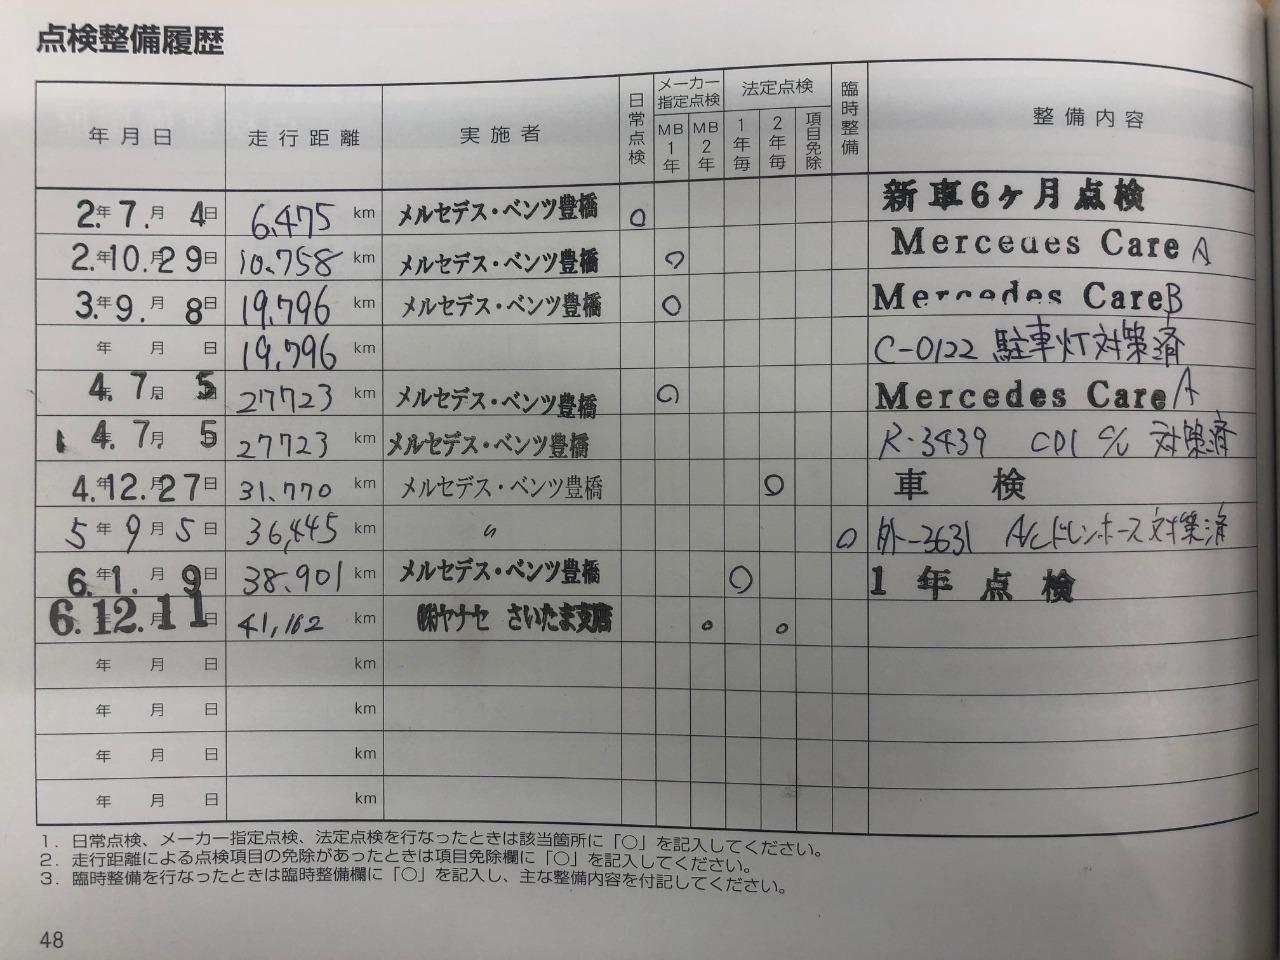 点検整備履歴
年月日 走行距離 実施者 日常点検 メーカー指定点検 MB1年 MB2年 法定点検 1年毎 2年毎 項目免除 臨時整備 整備内容
2.年7.月4日 6,475 km メルセデス・ベンツ豊橋 ○ 新車6ヶ月点検
2.年10.月29日 10,758 km メルセデス・ベンツ豊橋 ○ Mercedes Care A
3.年9.月8日 19,796 km メルセデス・ベンツ豊橋 ○ Mercedes Care B
年 月 日 19,796 km C-0122 駐車灯対策済
4.年7.月5日 27723 km メルセデス・ベンツ豊橋 ○ Mercedes Care A
4.年7.月5日 27723 km メルセデス・ベンツ豊橋 R-3439 CDI C/U 対策済
4.年12.月27日 31,770 km メルセデス・ベンツ豊橋 ○ 車検
5年9月5日 36,445 km 〃 ○ 外-3631 A/Cドレンホース対策済
6.年1.月9日 38,901 km メルセデス・ベンツ豊橋 ○ 1年点検
6.年12.月11日 41,162 km ㈱ヤナセ さいたま支店 ○ ○
年 月 日 km
年 月 日 km
年 月 日 km
年 月 日 km
1. 日常点検、メーカー指定点検、法定点検を行なったときは該当箇所に「○」を記入してください。
2. 走行距離による点検項目の免除があったときは項目免除欄に「○」を記入してください。
3. 臨時整備を行なったときは臨時整備欄に「○」を記入し、主な整備内容を付記してください。
48